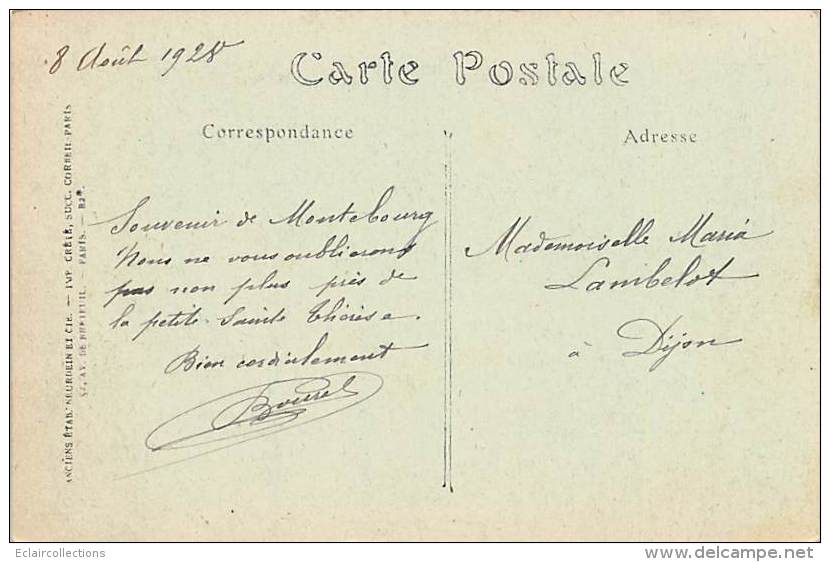 8 Août 1928
Carte Postale
Correspondance
Adresse
Souvenir de Montebourg
Nous ne vous oublierons
pas non plus près de
la petite Sainte Thérèse.
Bien cordialement
Bourel
Mademoiselle Maria
Lambelot
à Dijon
ANCIENS ÉTABts NEURDEIN ET CIE. — IMP. CRÉTÉ, SUCC. CORBEIL-PARIS
52, AV. DE BRETEUIL. — PARIS. —
Eclaircollections
www.delcampe.net